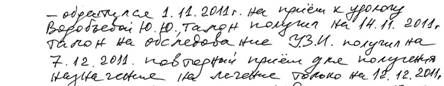 – обратился 1.11.2011г. на приём к урологу
Воробьевой Ю.Ю., талон получил на 14.11.2011г.
талон на обследование УЗИ. получил на
7.12.2011. повторный приём для получения
назначение на лечение только на 12.12.2011г.